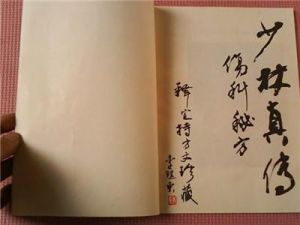 少林真傳
傷科秘方
釋定特方丈珍藏